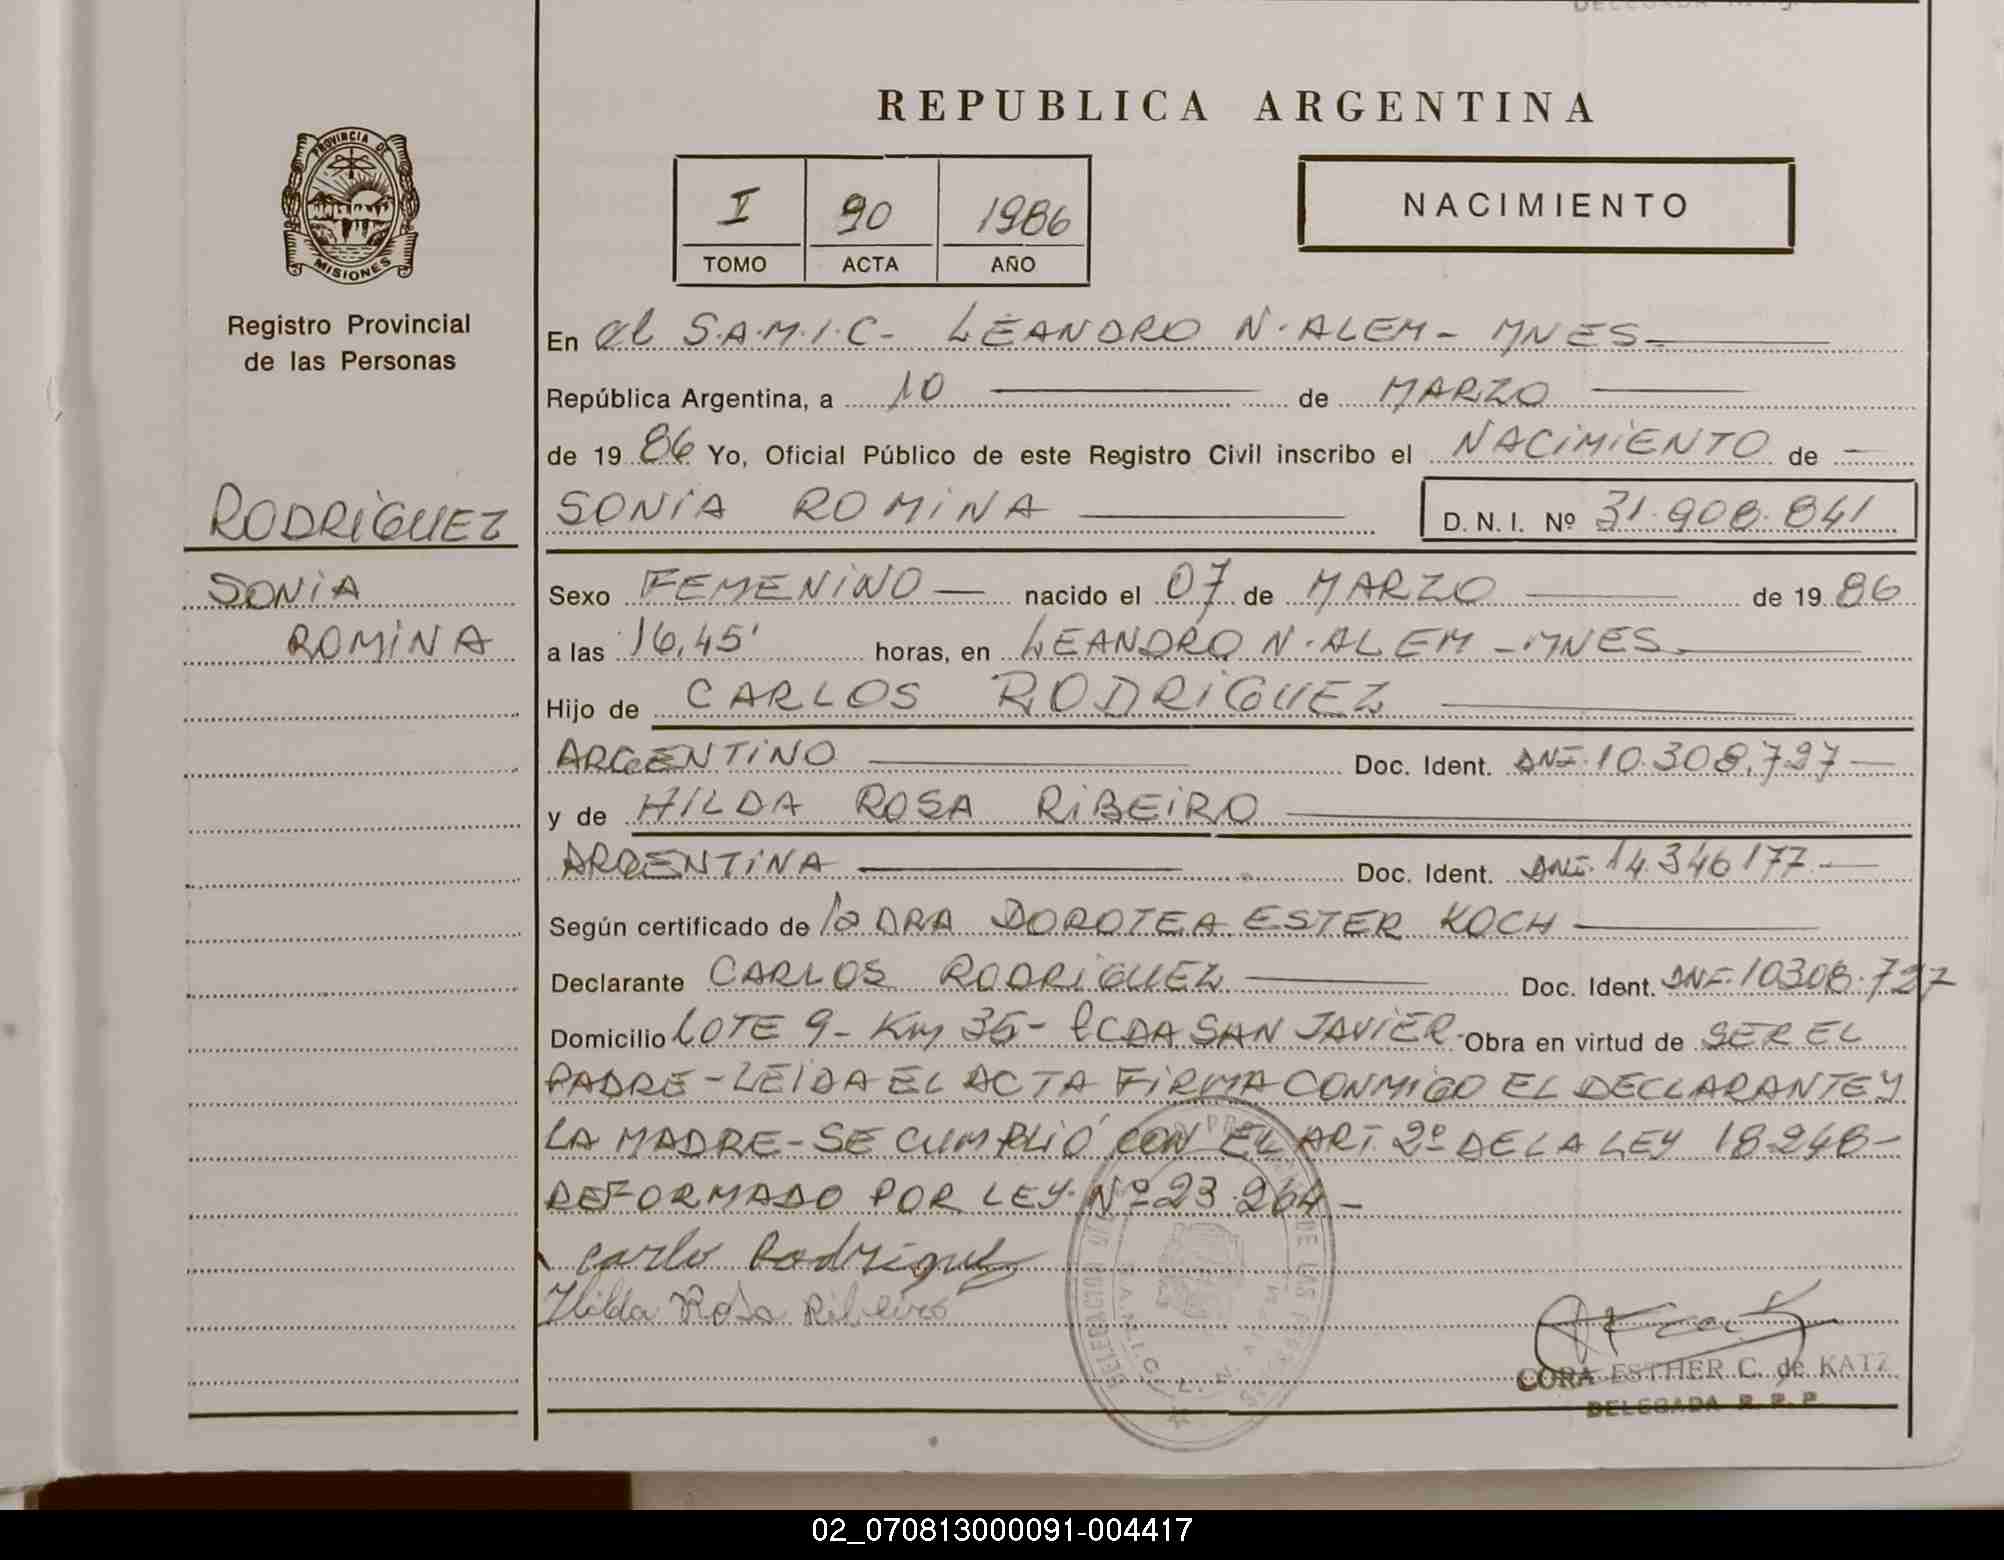 REPUBLICA ARGENTINA
PROVINCIA DE
MISIONES
Registro Provincial
de las Personas
I 90 1986
TOMO ACTA AÑO
NACIMIENTO
En el S.A.M.I.C- LEANDRO N. ALEM - MNES
República Argentina, a 10 de MARZO
de 1986 Yo, Oficial Público de este Registro Civil inscribo el NACIMIENTO de
RODRIGUEZ
SONIA ROMINA
D. N. I. Nº 31.908.841
SONIA
ROMINA
Sexo FEMENINO nacido el 07 de MARZO de 1986
a las 16,45' horas, en LEANDRO N. ALEM - MNES
Hijo de CARLOS RODRIGUEZ
ARGENTINO Doc. Ident. DNI. 10.308.727
y de HILDA ROSA RIBEIRO
ARGENTINA Doc. Ident. DNI. 14.346177
Según certificado de la DRA DOROTEA ESTER KOCH
Declarante CARLOS RODRIGUEZ Doc. Ident. DNI. 10308.727
Domicilio LOTE 9 - KM 35 - PCDA SAN JAVIER Obra en virtud de SER EL
PADRE - LEIDA EL ACTA FIRMA CONMIGO EL DECLARANTE Y
LA MADRE - SE CUMPLIÓ CON EL ART. 2º DE LA LEY 18.248 -
REFORMADO POR LEY Nº 23.264 -
Carlo Rodriguez
Hilda Rosa Ribeiro
DELEGACION DE LAS
S.A.M.I.C. L. N. ALEM
CORA ESTHER C. de KATZ
DELEGADA R. P. P
02_070813000091-004417